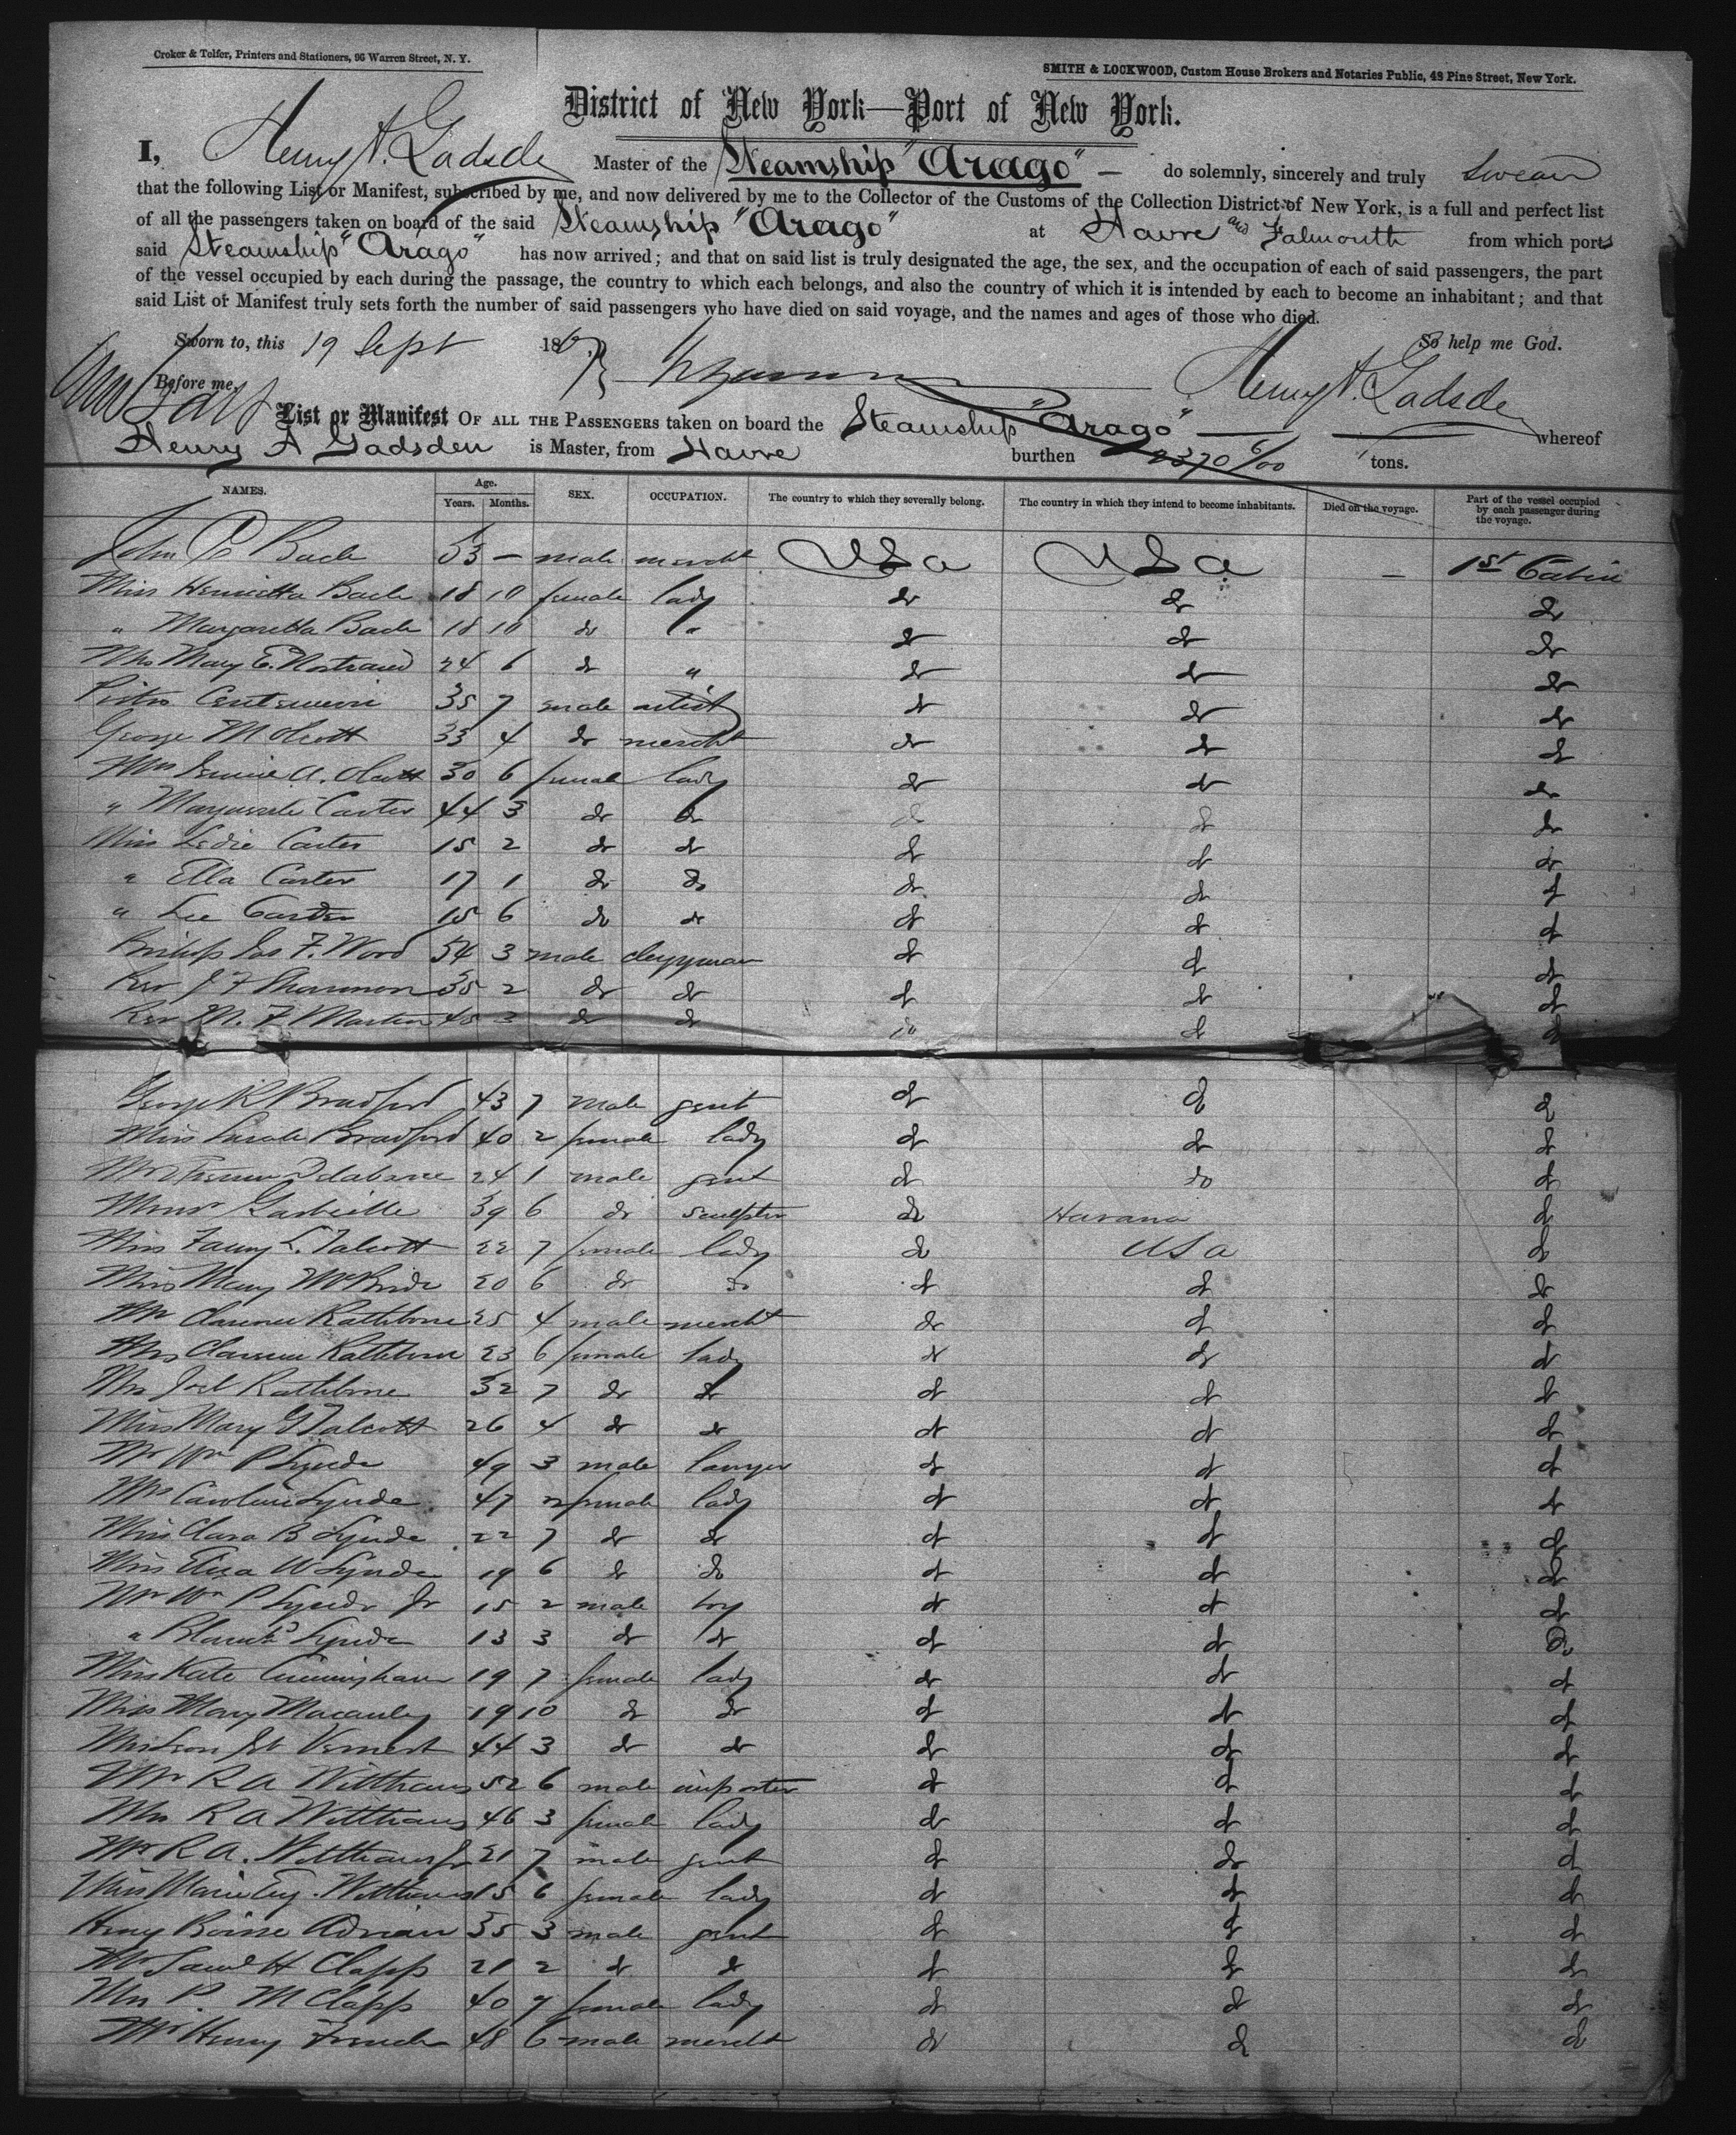 Croker & Telfer, Printers and Stationers, 96 Warren Street, N. Y.
SMITH & LOCKWOOD, Custom House Brokers and Notaries Public, 48 Pine Street, New York.
District of New York—Port of New York.
I, Henry A. Gadsden Master of the Steamship "Arago" — do solemnly, sincerely and truly swear
that the following List or Manifest, subscribed by me, and now delivered by me to the Collector of the Customs of the Collection District of New York, is a full and perfect list
of all the passengers taken on board of the said Steamship "Arago" at Havre and Falmouth from which ports
said Steamship "Arago" has now arrived; and that on said list is truly designated the age, the sex, and the occupation of each of said passengers, the part
of the vessel occupied by each during the passage, the country to which each belongs, and also the country of which it is intended by each to become an inhabitant; and that
said List or Manifest truly sets forth the number of said passengers who have died on said voyage, and the names and ages of those who died.
Sworn to, this 19 Sept 1867 So help me God.
Before me, Henry A. Gadsden
List or Manifest OF ALL THE PASSENGERS taken on board the Steamship "Arago" whereof
Henry A Gadsden is Master, from Havre burthen 2370 6/00 tons.
NAMES. Age. Years. Months. SEX. OCCUPATION. The country to which they severally belong. The country in which they intend to become inhabitants. Died on the voyage. Part of the vessel occupied by each passenger during the voyage.
John C Bach 53 — male mercht USa USa — 1st Cabin
Miss Henrietta Bach 18 10 female lady do do do
" Margaretta Bach 18 10 do " do do do
Mrs Mary E. Nostrand 24 6 do " do do do
35 7 male artist do do do
George M Olcott 33 4 do mercht do do do
Mrs A. Olcott 30 6 female lady do do do
" Carter 44 3 do do do do do
Miss Carter 15 2 do do do do do
" Ella Carter 17 1 do do do do do
" Lee Carter 15 6 do do do do do
Bishop Jas F. Wood 54 3 male clergyman do do do
Rev J F Shannon 35 2 do do do do do
Rev M. F Martin 45 3 do do " do do
George R Bradford 43 7 male gent do do do
Miss Sarah Bradford 40 2 female lady do do do
24 1 male gent do do do
Monsr 39 6 do sculptor do Havana do
Miss Fanny L. Talcott 22 7 female lady do USa do
Miss Mary McBride 20 6 do do do do do
Mr Clarence Rathbone 25 4 male mercht do do do
Mrs Clarence Rathbone 23 6 female lady do do do
Mrs Joel Rathbone 32 7 do do do do do
Miss Mary G Talcott 26 4 do do do do do
Mr Wm P Lynde 49 3 male lawyer do do do
Mrs Caroline Lynde 47 2 female lady do do do
Miss Clara B Lynde 22 7 do do do do do
Miss Eliza W Lynde 19 6 do do do do do
Mr Wm P Lynde Jr 15 2 male boy do do do
" Lynde 13 3 do do do do do
Miss Kate Cunningham 19 7 female lady do do do
Miss Mary Macauley 19 10 do do do do do
44 3 do do do do do
Mr R A Witthaus 52 6 male importer do do do
Mrs R A Witthaus 46 3 female lady do do do
Mr R A. Witthaus Jr 21 7 male gent do do do
Miss Marie Eug. Witthaus 15 6 female lady do do do
Henry Adrian 35 3 male gent do do do
Mr Saml H Clapp 21 2 do do do do do
Mrs P. M Clapp 40 7 female lady do do do
Mr Henry French 48 6 male mercht do do do